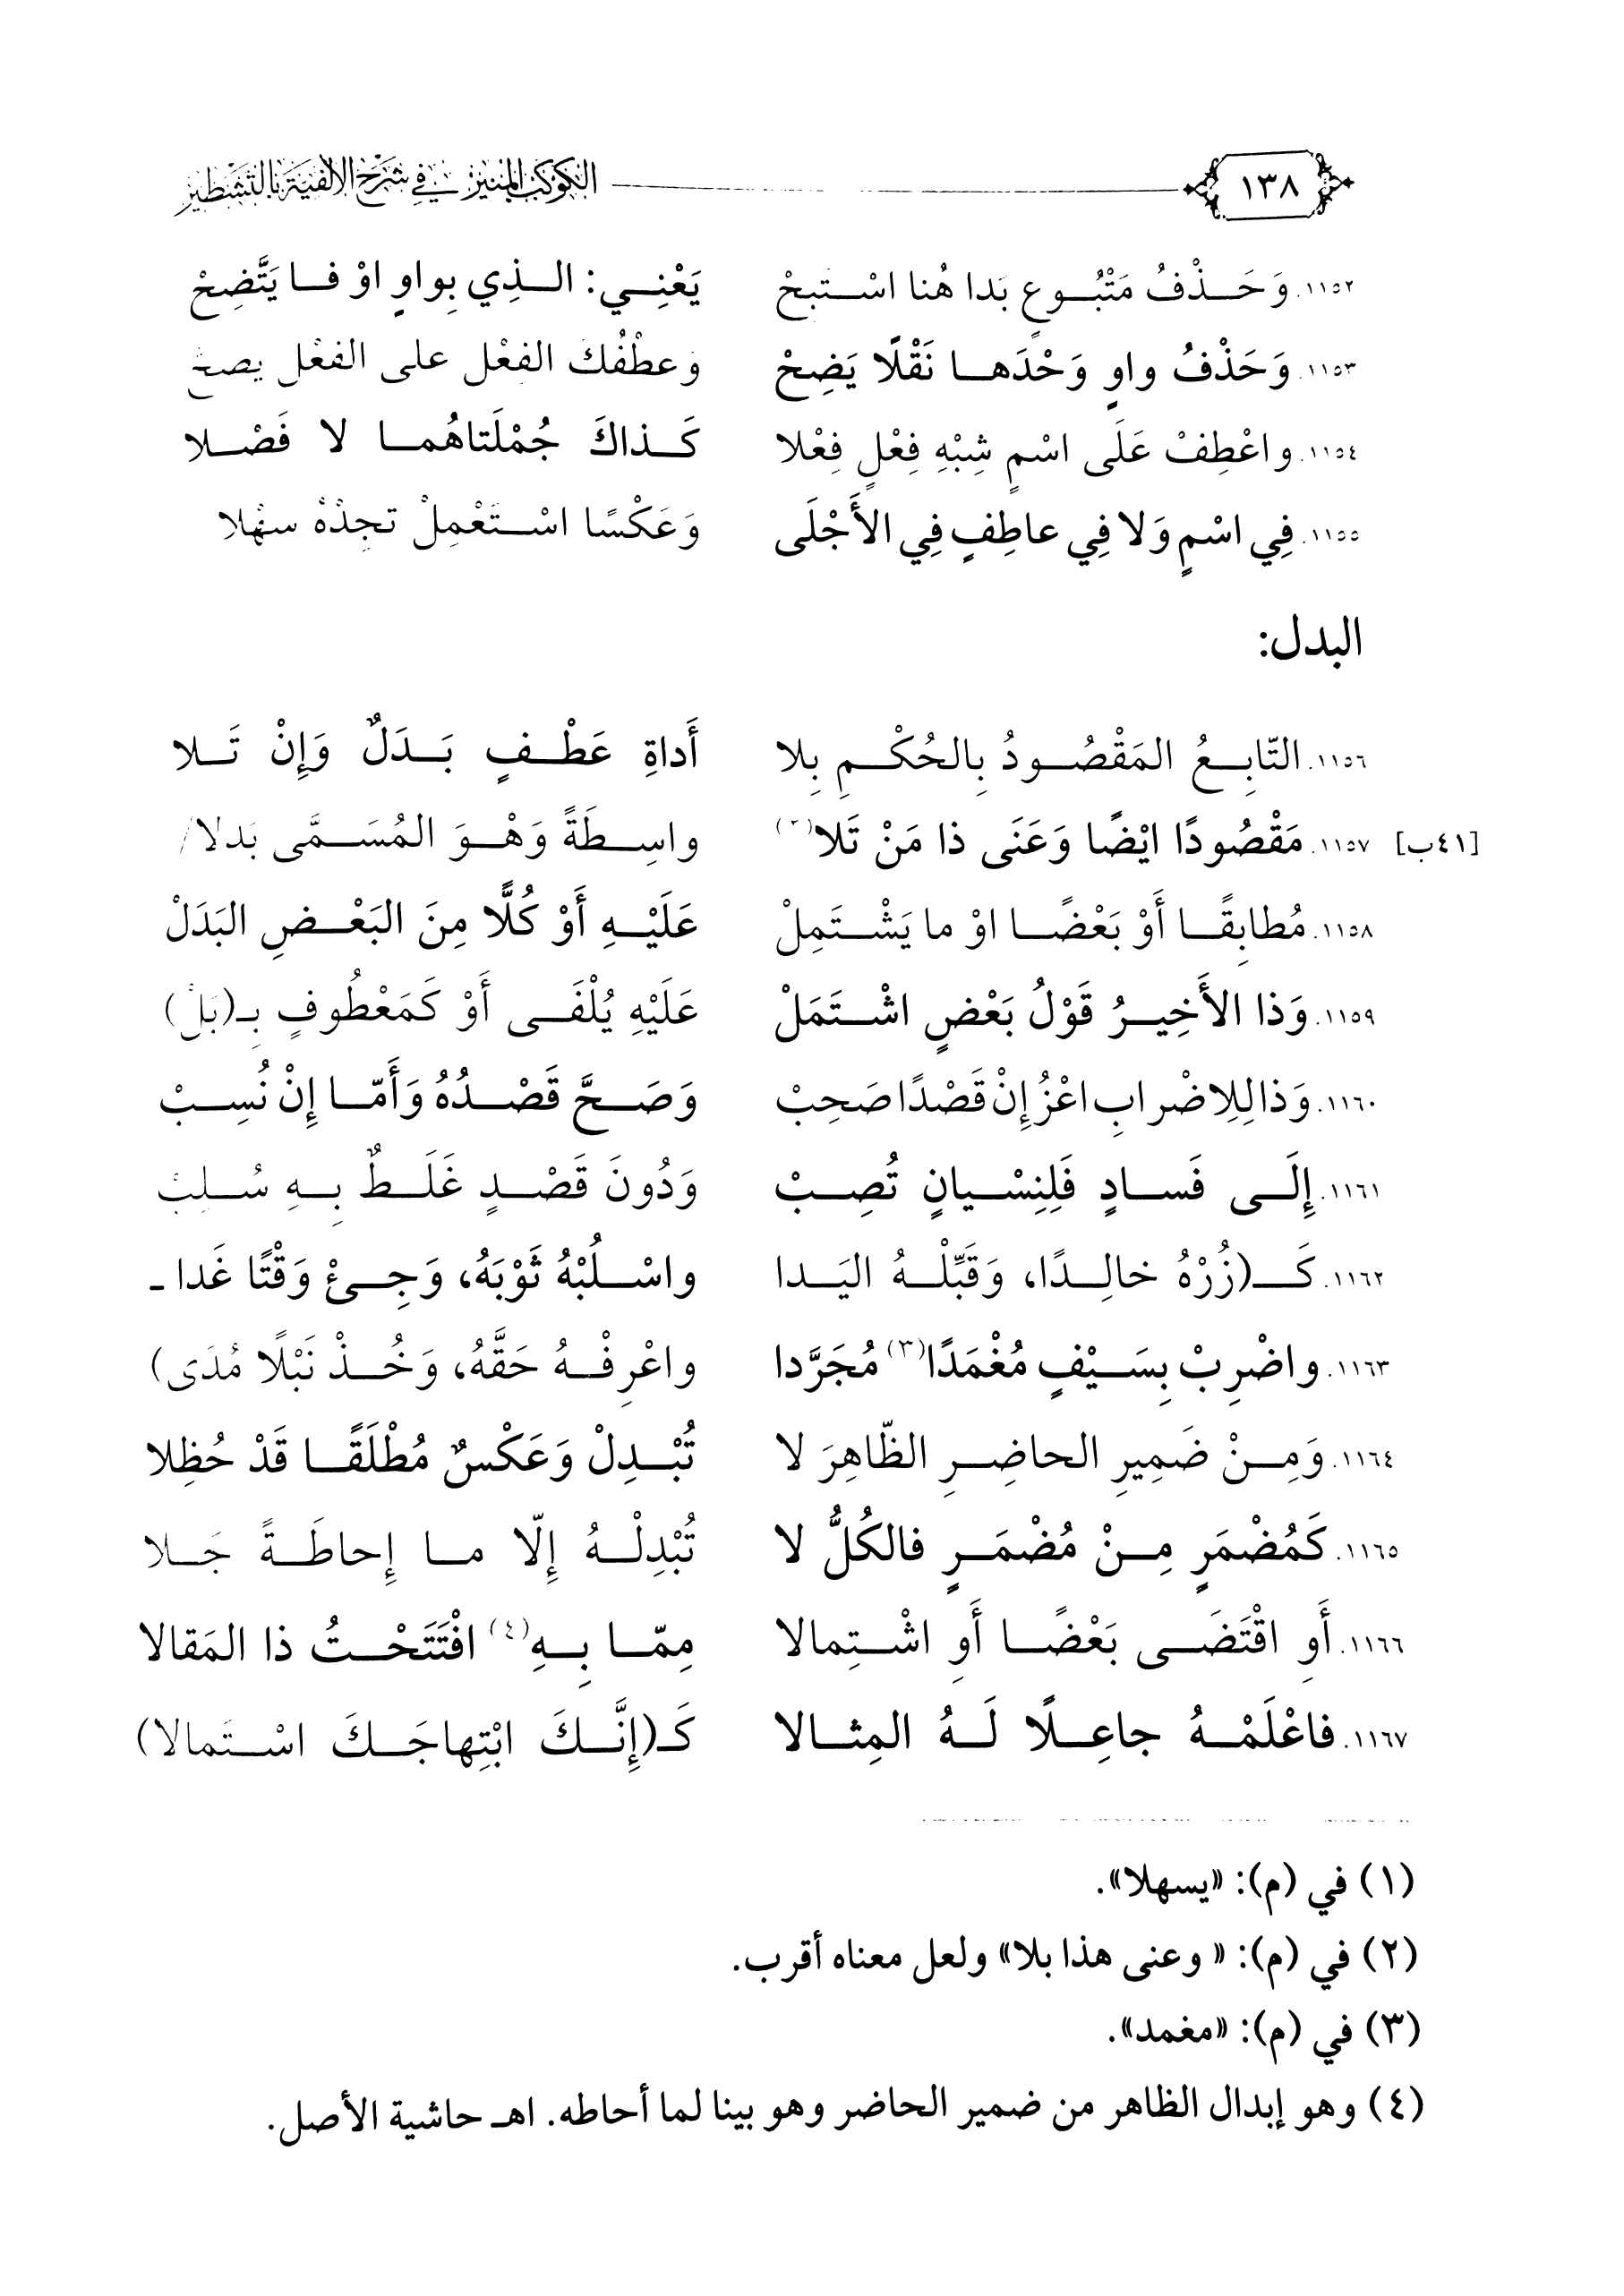 ١٣٨ الكوكب المنير في شرح الألفية بالتشطير
١١٥٢. وَحَذْفُ مَتْبُوعٍ بَدا هُنا اسْتَبِحْ يَعْنِي: الذِي بِواوٍ اوْ فا يَتَّضِحْ
١١٥٣. وَحَذْفُ واوٍ وَحْدَها نَقْلًا يَضِحْ وَعطْفُكَ الفِعْلَ على الفِعْلِ يصحْ
١١٥٤. واعْطِفْ عَلَى اسْمٍ شِبْهِ فِعْلٍ فِعْلا كَذاكَ جُمْلَتاهُما لا فَصْلا
١١٥٥. فِي اسْمٍ وَلا فِي عاطِفٍ فِي الأَجْلَى وَعَكْسًا اسْتَعْمِلْ تجِدْهُ سهْلا
البدل:
١١٥٦. التّابِعُ المَقْصُودُ بِالحُكْمِ بِلا أَداةِ عَطْفٍ بَدَلٌ وَإِنْ تَلا
[٤١ب] ١١٥٧. مَقْصُودًا ايْضًا وَعَنَى ذا مَنْ تَلا(٢) واسِطَةً وَهْوَ المُسَمَّى بَدلا/
١١٥٨. مُطابِقًا أَوْ بَعْضًا اوْ ما يَشْتَمِلْ عَلَيْهِ أَوْ كُلًّا مِنَ البَعْضِ البَدَلْ
١١٥٩. وَذا الأَخِيرُ قَوْلُ بَعْضٍ اشْتَمَلْ عَلَيْهِ يُلْفَى أَوْ كَمَعْطُوفٍ بِـ(بَلْ)
١١٦٠. وَذا لِلِاضْرابِ اعْزُ إِنْ قَصْدًا صَحِبْ وَصَحَّ قَصْدُهُ وَأَمّا إِنْ نُسِبْ
١١٦١. إِلَى فَسادٍ فَلِنِسْيانٍ تُصِبْ وَدُونَ قَصْدٍ غَلَطٌ بِهِ سُلِبْ
١١٦٢. كَـ(زُرْهُ خالِدًا، وَقَبِّلْهُ اليَدا واسْلُبْهُ ثَوْبَهُ، وَجِئْ وَقْتًا غَدا -
١١٦٣. واضْرِبْ بِسَيْفٍ مُغْمَدًا(٣) مُجَرَّدا واعْرِفْهُ حَقَّهُ، وَخُذْ نَبْلًا مُدَى)
١١٦٤. وَمِنْ ضَمِيرِ الحاضِرِ الظّاهِرَ لا تُبْدِلْ وَعَكْسٌ مُطْلَقًا قَدْ حُظِلا
١١٦٥. كَمُضْمَرٍ مِنْ مُضْمَرٍ فالكُلُّ لا تُبْدِلْهُ إِلّا ما إِحاطَةً جَلا
١١٦٦. أَوِ اقْتَضَى بَعْضًا أَوِ اشْتِمالا مِمّا بِهِ(٤) افْتَتَحْتُ ذا المَقالا
١١٦٧. فاعْلَمْهُ جاعِلًا لَهُ المِثالا كَـ(إِنَّكَ ابْتِهاجَكَ اسْتَمالا)
(١) في (م): «يسهلا».
(٢) في (م): « وعنى هذا بلا» ولعل معناه أقرب.
(٣) في (م): «مغمد».
(٤) وهو إبدال الظاهر من ضمير الحاضر وهو بينا لما أحاطه. اهـ حاشية الأصل.